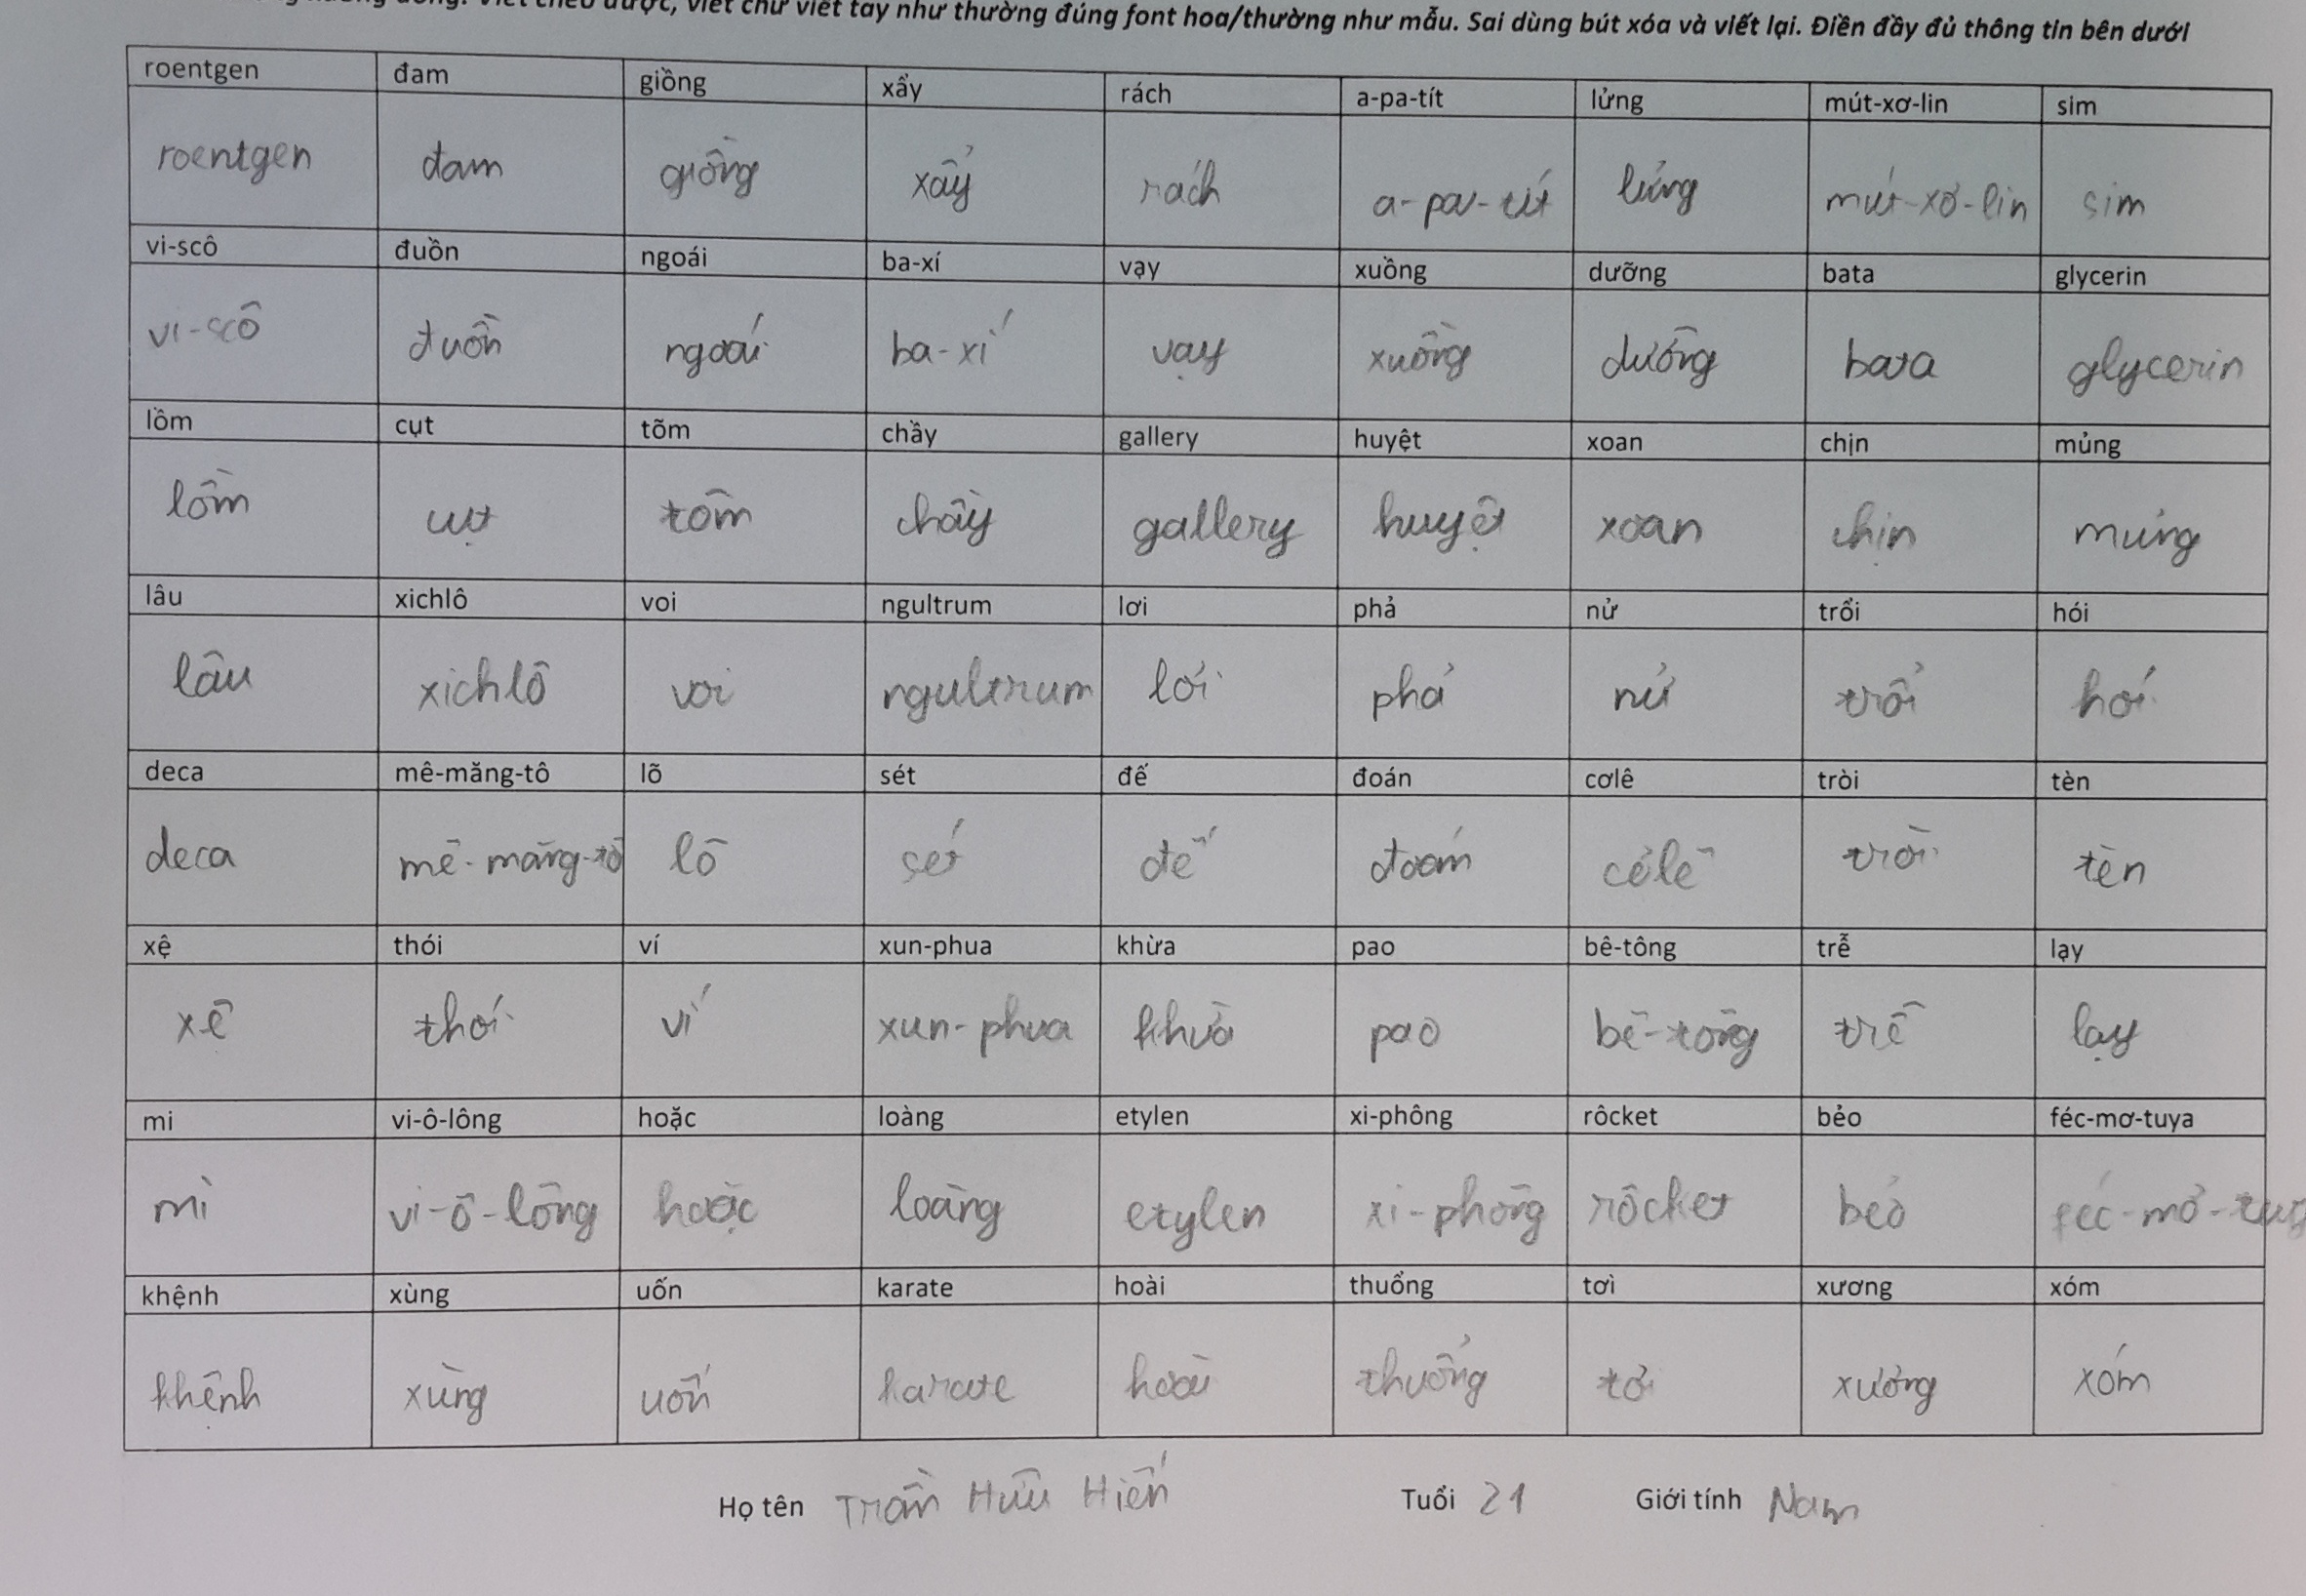 viết chữ viết tay như thường đúng font hoa/thường như mẫu. Sai dùng bút xóa và viết lại. Điền đầy đủ thông tin bên dưới
roentgen đam giồng xẩy rách a-pa-tít lửng mút-xơ-lin sim
roentgen đam giồng xẩy rách a-pa-tít lửng mút-xơ-lin sim
vi-scô đuồn ngoái ba-xí vạy xuồng dưỡng bata glycerin
vi-scô đuồn ngoái ba-xí vạy xuồng dưỡng bata glycerin
lồm cụt tõm chầy gallery huyệt xoan chịn mủng
lồm cụt tõm chầy gallery huyệt xoan chịn mủng
lâu xichlô voi ngultrum lơi phả nử trổi hói
lâu xichlô voi ngultrum lơi phả nử trổi hói
deca mê-măng-tô lõ sét đế đoán cơlê tròi tèn
deca mê-măng-tô lõ sét đế đoán cơlê tròi tèn
xệ thói ví xun-phua khừa pao bê-tông trễ lạy
xệ thói ví xun-phua khừa pao bê-tông trễ lạy
mi vi-ô-lông hoặc loàng etylen xi-phông rôcket bẻo féc-mơ-tuya
mi vi-ô-lông hoặc loàng etylen xi-phông rôcket bẻo
khệnh xùng uốn karate hoài thuổng tơì xương xóm
khệnh xùng uốn karate hoài thuổng tơì xương xóm
Họ tên Trần Hữu Hiến Tuổi 21 Giới tính Nam